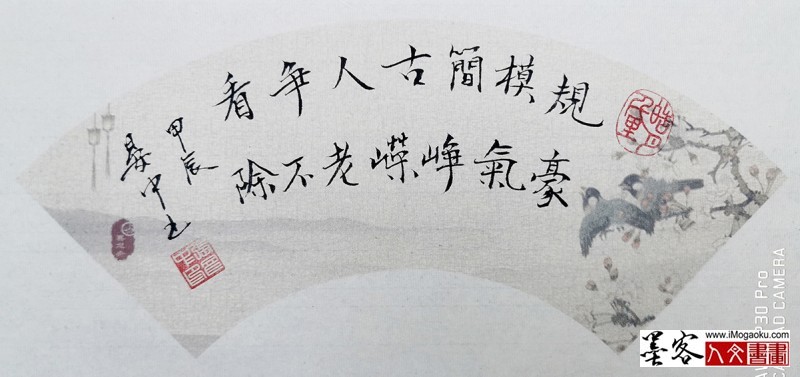 規模簡古人爭看
豪氣峥嶸老不除
甲辰
中书
墨客
www.iMogaoku.com
人文書畫
P30 Pro
AD CAMERA